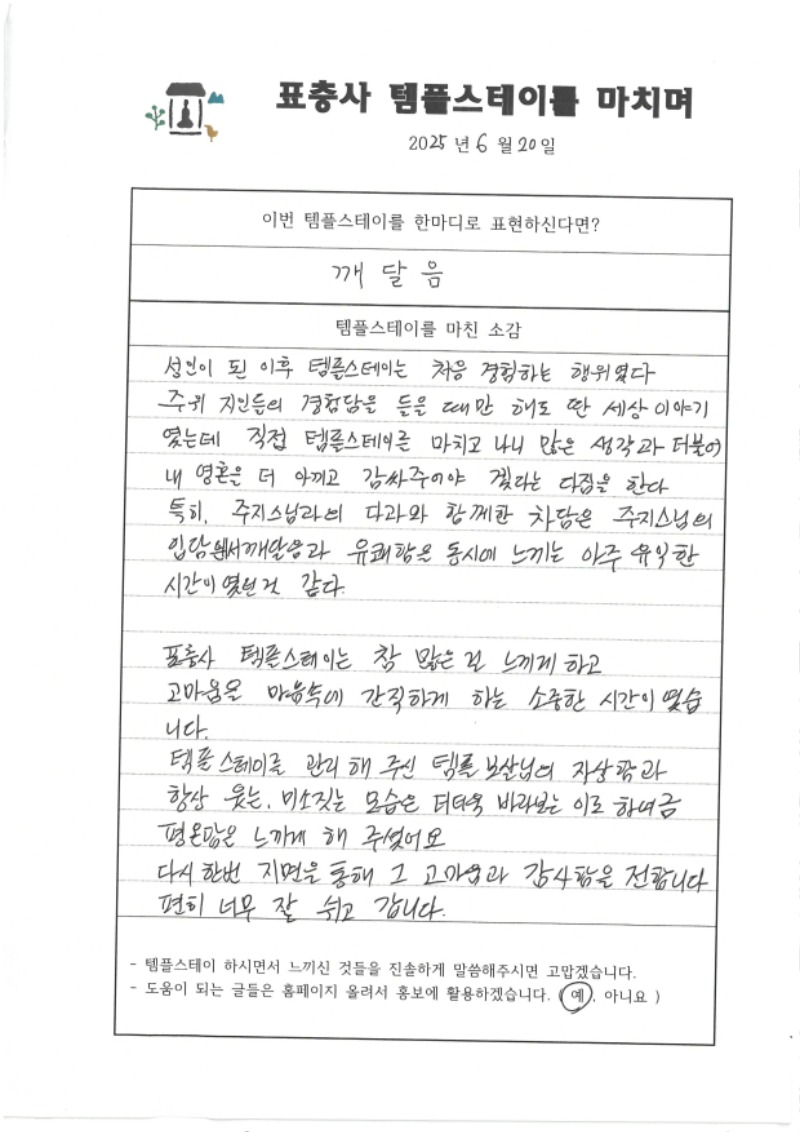 표충사 템플스테이를 마치며
2025 년 6 월 20 일
이번 템플스테이를 한마디로 표현하신다면?
깨 달 음
템플스테이를 마친 소감
성인이 된 이후 템플스테이는 처음 경험하는 행위였다
주위 지인들의 경험담을 들을 때만 해도 딴 세상 이야기
였는데 직접 템플스테이를 마치고 나니 많은 생각과 더불어
내 영혼을 더 아끼고 감싸주어야 겠다는 다짐을 한다
특히, 주지스님과의 다과와 함께한 차담은 주지스님의
입담에서 깨달음과 유쾌함을 동시에 느끼는 아주 유익한
시간이 였던것 같다.
표충사 템플스테이는 참 많은 걸 느끼게 하고
고마움을 마음속에 간직하게 하는 소중한 시간이 였습
니다.
템플스테이를 관리 해 주신 템플 보살님의 자상함과
항상 웃는, 미소짓는 모습은 더더욱 바라보는 이로 하여금
평온함을 느끼게 해 주셨어요
다시 한번 지면을 통해 그 고마움과 감사함을 전합니다
편히 너무 잘 쉬고 갑니다.
- 템플스테이 하시면서 느끼신 것들을 진솔하게 말씀해주시면 고맙겠습니다.
- 도움이 되는 글들은 홈페이지 올려서 홍보에 활용하겠습니다. ( 예 , 아니요 )